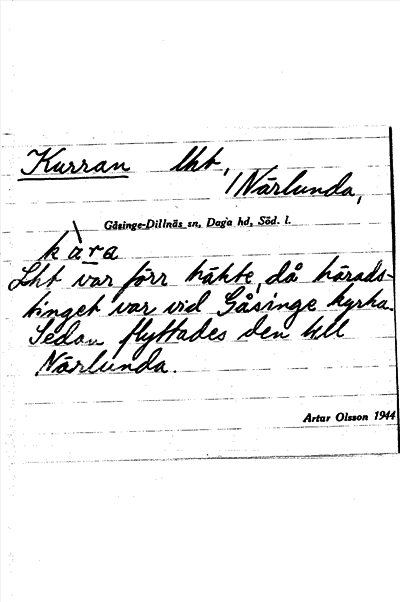 Kurran lht,
/Närlunda,
Gåsinge-Dillnäs sn, Daga hd, Söd. l.
Lht var förr häkte, då härads-
tinget var vid Gåsinge kyrka.
Sedan flyttades den till
Närlunda.
Artur Olsson 1944